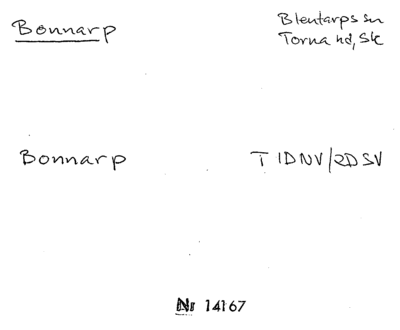 Bonnarp
Blentarps sn
Torna hd, Sk
Bonnarp
T 1DNV/2DSV
Nr 14167